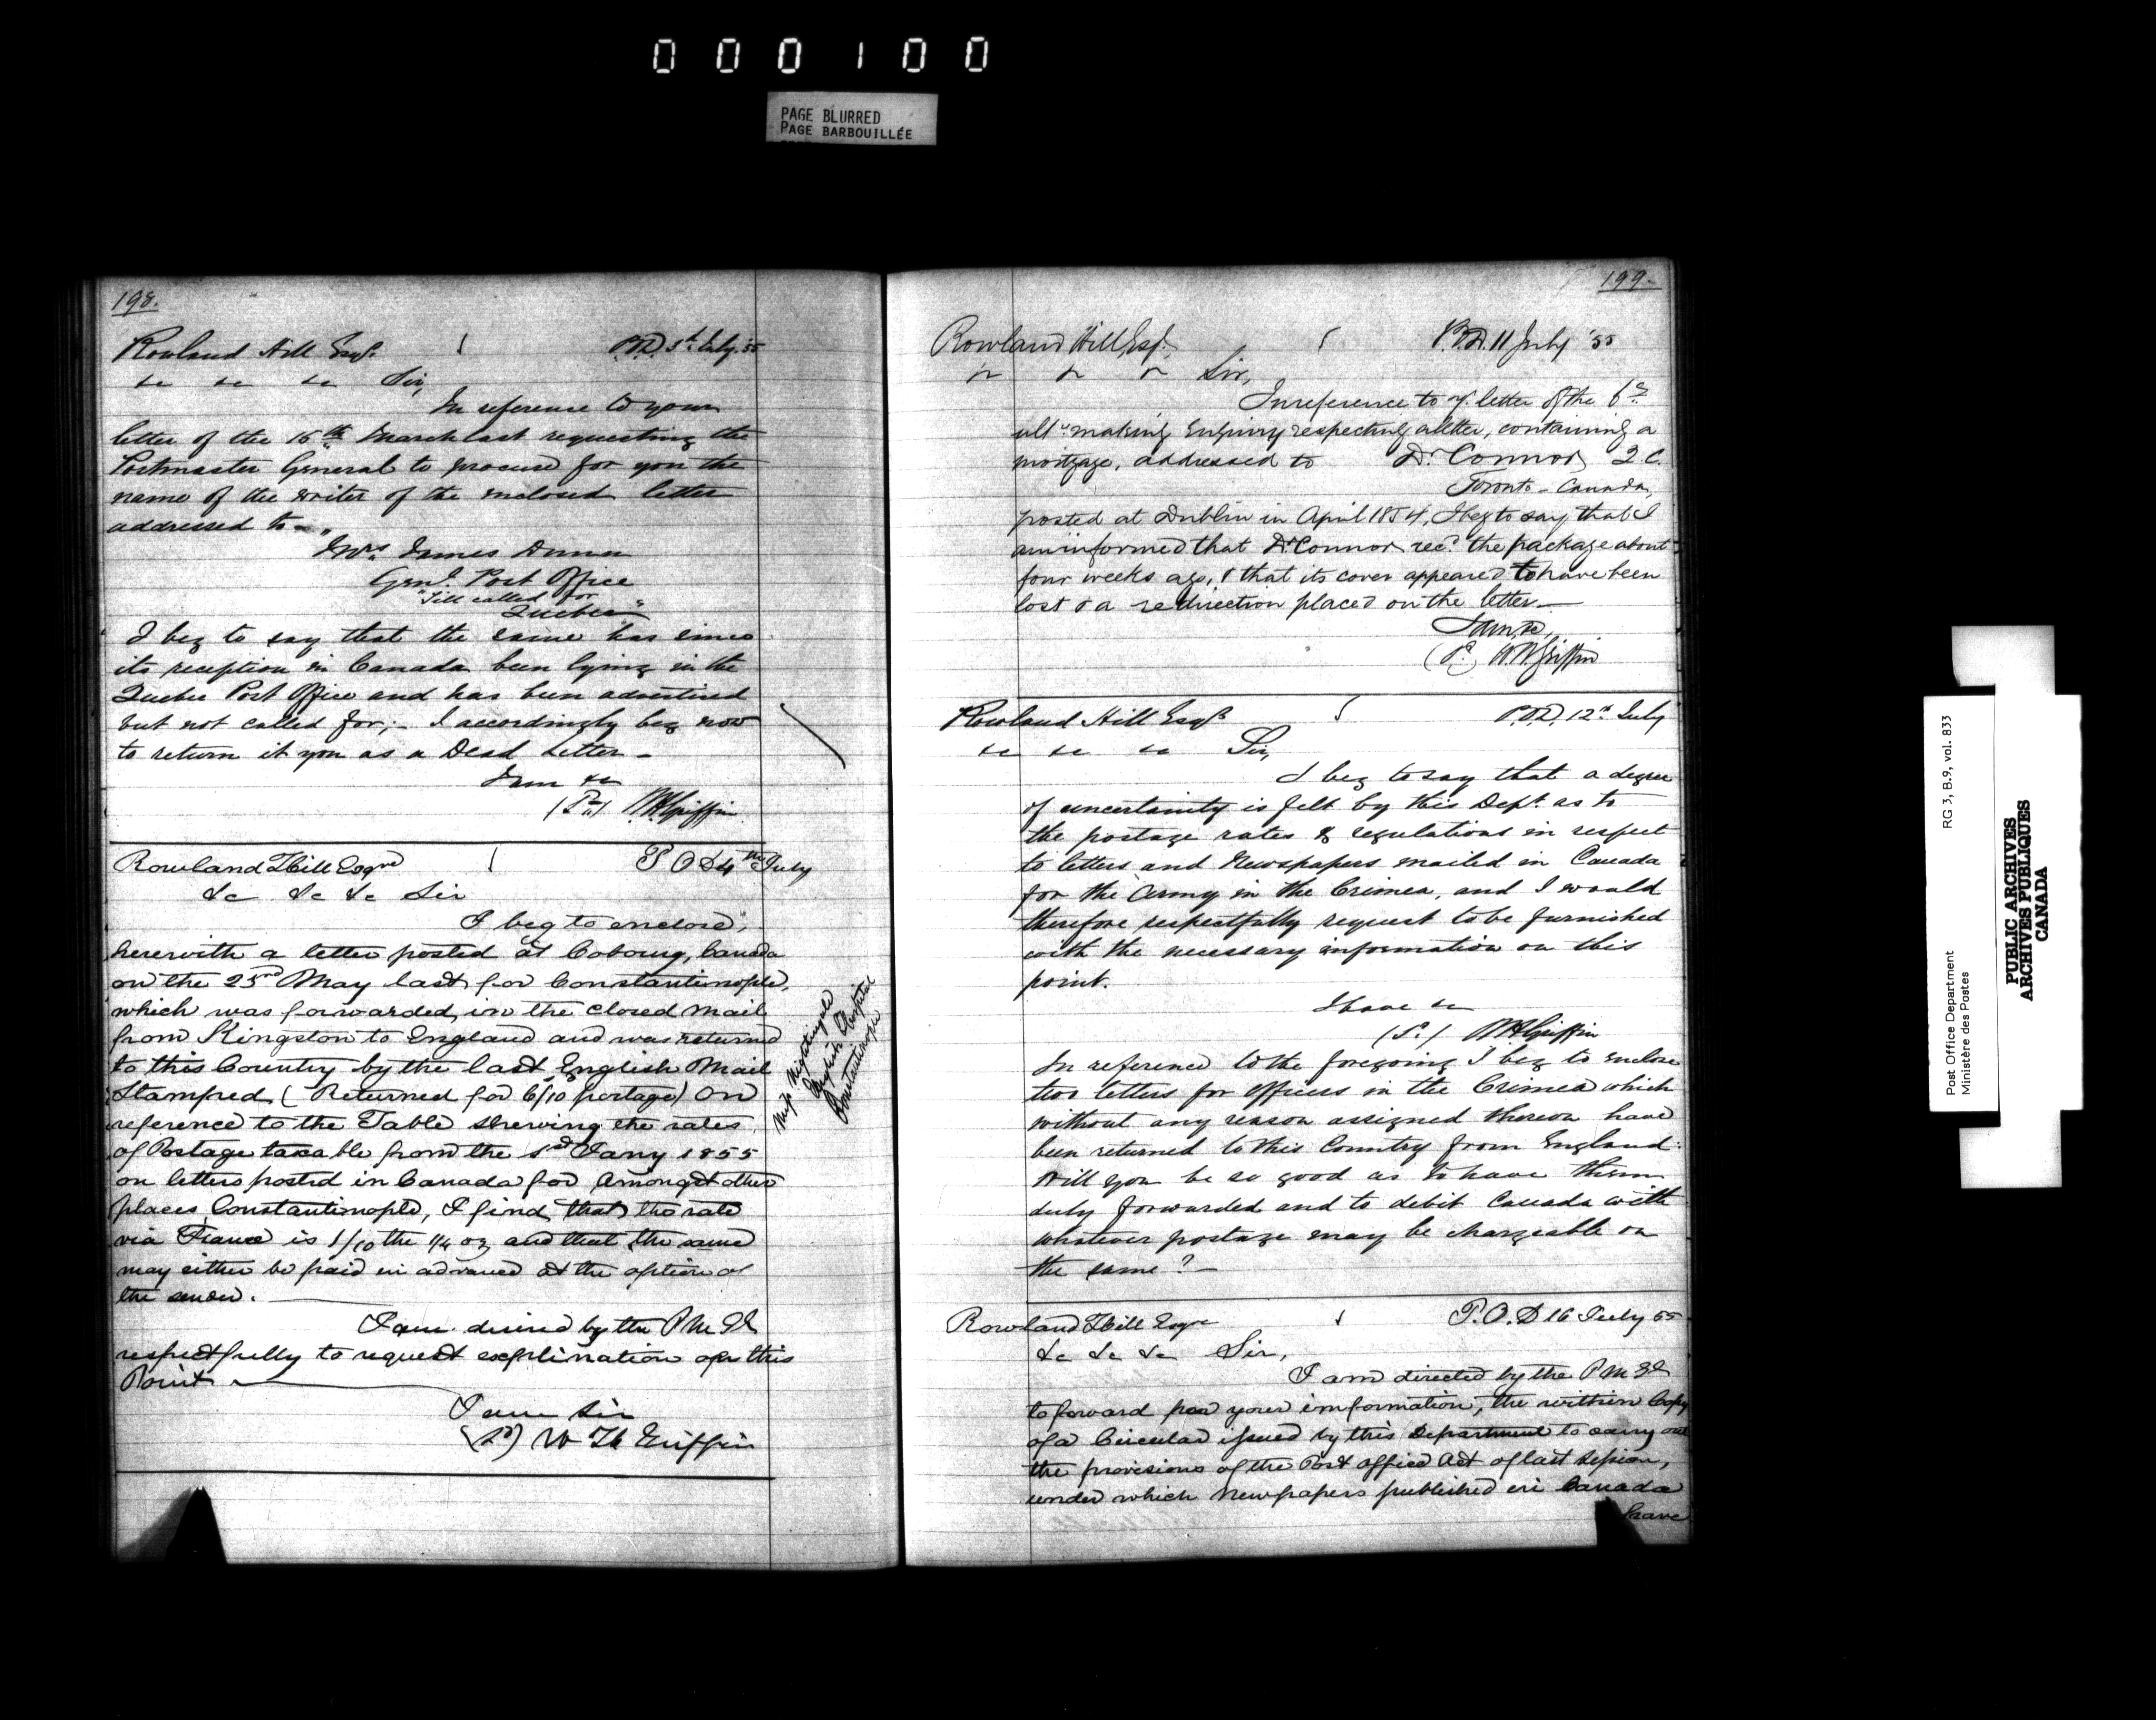 000100
PAGE BLURRED
PAGE BARBOUILLÉE
198.
Rowland Hill Esqr. P.O.D. 3d. July '55
&c &c &c Sir,
In reference to your
letter of the 15th March last requesting the
Postmaster General to procure for you the
name of the writer of the enclosed letter
addressed to "
Mrs James Dunn
Genl. Post Office
"Till called for
Quebec"
I beg to say that the same has since
its reception in Canada been lying in the
Quebec Post Office and has been advertised
but not called for; - I accordingly beg now
to return it you as a Dead Letter -
I am &c
W.H. Griffin
Rowland Hill Esqre P O D 4th July
&c &c &c Sir
I beg to enclose,
herewith a letter posted at Cobourg, Canada
on the 23rd May last for Constantinople,
which was forwarded, in the closed mail
from Kingston to England and was returned
to this Country by the last English Mail
Stamped (Returned for 6/10 postage) On
reference to the Table shewing the rates
of Postage taxable from the 1st Jany 1855
on letters posted in Canada for Amongst other
places Constantinople, I find that the rate
via France is 1/10 the 1/4 oz and that the same
may either be paid in advance at the option of
the sender.
I am desired by the P M Gl
respectfully to request explination upon this
Point
I am Sir
W H Griffin
Miss Nightingale
English Hospital
Constantinople
199.
Rowland Hill, Esq. P.O.D. 11 July '55
Sir,
In reference to yr. letter of the 6th
ulto making Enquiry respecting a letter, containing a
mortgage, addressed to Dr. Connor, Q.C.
Toronto - Canada,
posted at Dublin in April 1854, I beg to say that I
am informed that Dr. Connor recd. the package about
four weeks ago, & that its cover appeared to have been
lost & a redirection placed on the letter. -
I am, &c,
W.H. Griffin
Rowland Hill Esqr P.O.D. 12th July
&c &c &c Sir,
I beg to say that a degree
of uncertainity is felt by this Dept. as to
the postage rates & regulations in respect
to letters and Newspapers mailed in Canada
for the Army in the Crimea, and I would
therefore respectfully request to be furnished
with the necessary information on this
point.
I have &c
W H Griffin
In reference to the foregoing I beg to enclose
two letters for Officers in the Crimea which
without any reason assigned thereon have
been returned to this Country from England:
Will you be so good as to have them
duly forwarded and to debit Canada with
whatever postage may be chargeable on
the same? -
Rowland Hill Esqre P.O.D 16 July 55
&c &c &c Sir,
I am directed by the P M Gl
to forward for your information, the within Copy
of a Circular issued by this Department to carry out
the provisions of the Post Office Act of last Session,
under which Newspapers published in Canada
have
Post Office Department RG 3, B.9, vol. 833
Ministère des Postes
PUBLIC ARCHIVES
ARCHIVES PUBLIQUES
CANADA